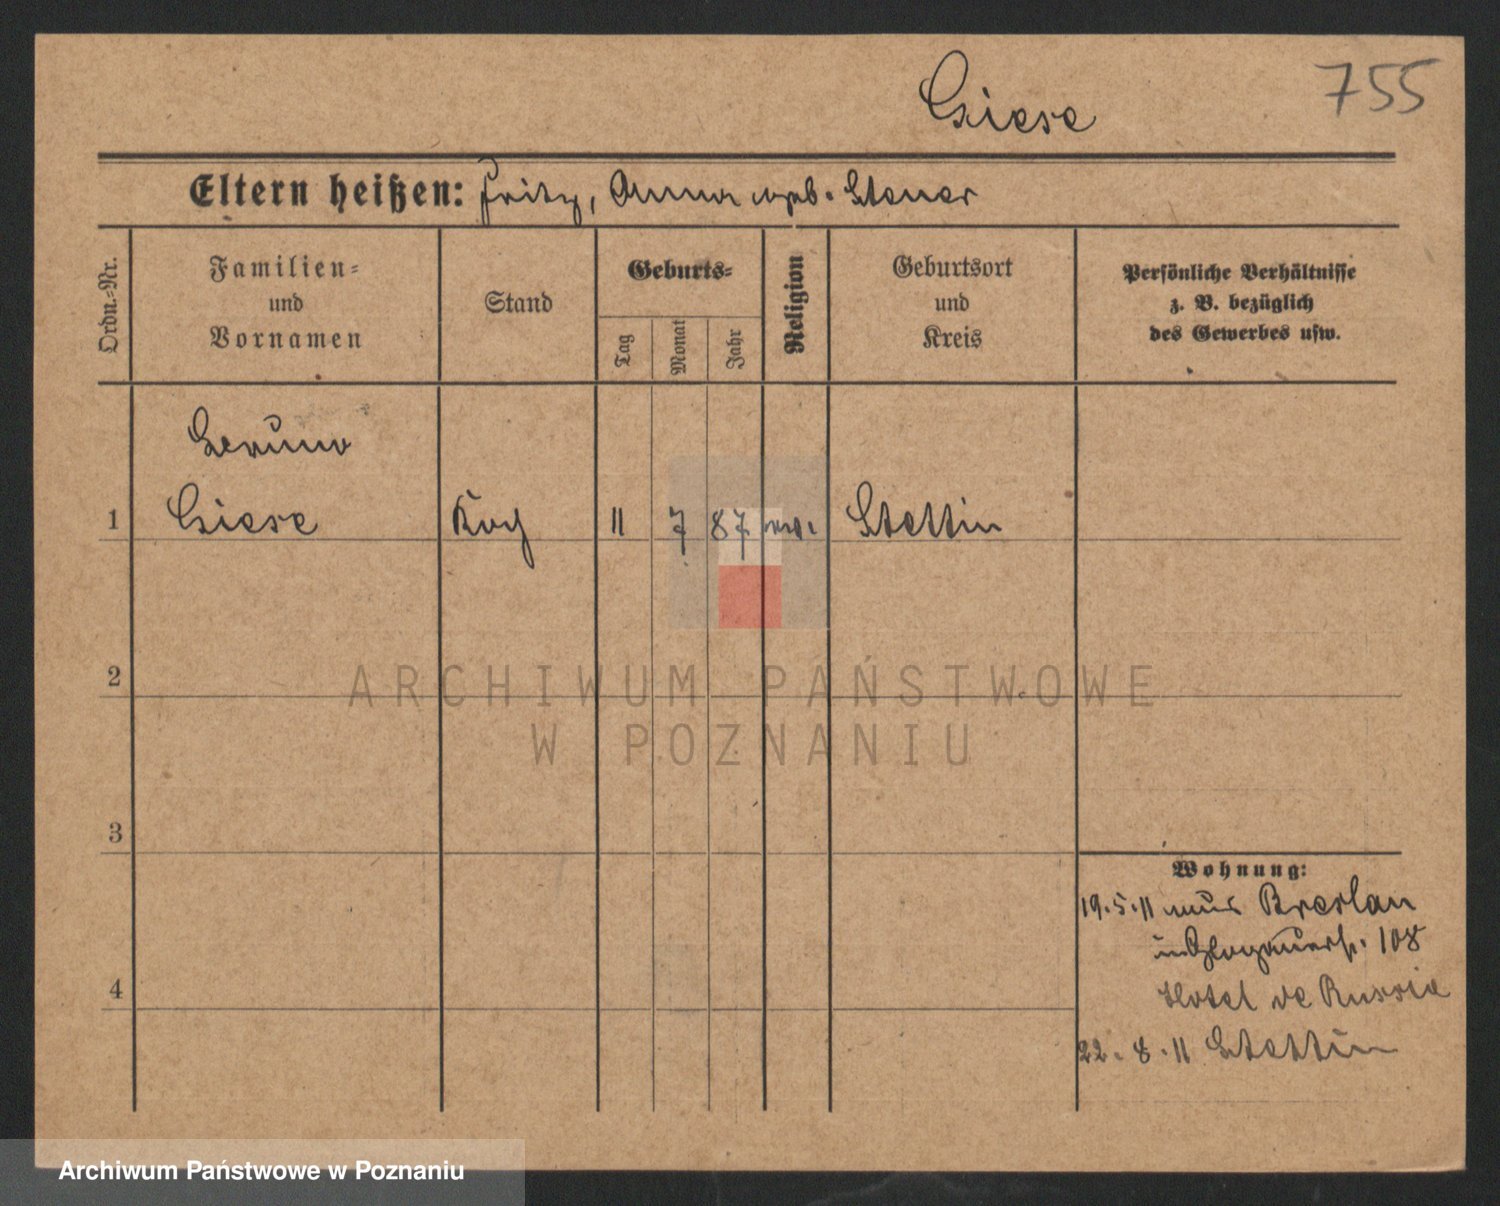 Giese
755
Eltern heißen: Fritz, Anna geb. Stener
Ordn.-Nr.
Familien-
und
Vornamen
Stand
Geburts-
Tag
Monat
Jahr
Religion
Geburtsort
und
Kreis
Persönliche Verhältnisse
z. B. bezüglich
des Gewerbes usw.
Bruno
1 Giese Koch 11 7 87 ev. Stettin
2
ARCHIWUM PAŃSTWOWE
W POZNANIU
3
Wohnung:
19.5.11 aus Breslau
in Glogauerstr. 108
Hotel de Russie
4
22.8.11 Stettin
Archiwum Państwowe w Poznaniu